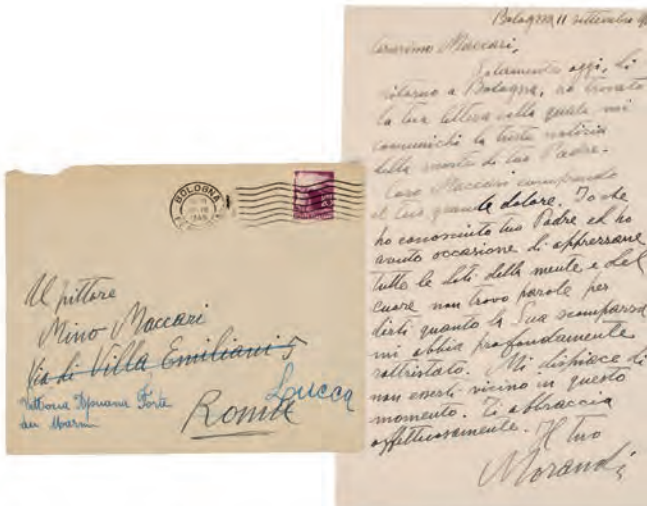 BOLOGNA
Al pittore
Mino Maccari
Via di Villa Emiliani 5
Vittoria Apuana Forte
dei Marmi
Lucca
Roma
Bologna, 11 settembre
Carissimo Maccari,
Solamente oggi, di
ritorno a Bologna, ho trovato
la tua lettera colla quale mi
comunichi la triste notizia
della morte di tuo Padre.
Caro Maccari comprendo
il tuo grande dolore. Io che
ho conosciuto tuo Padre ed ho
avuto occasione di apprezzare
tutte le doti della mente e del
cuore non trovo parole per
dirti quanto la Sua scomparsa
mi abbia profondamente
rattristato. Mi dispiace di
non esserti vicino in questo
momento. Ti abbraccia
affettuosamente. Il tuo
Morandi